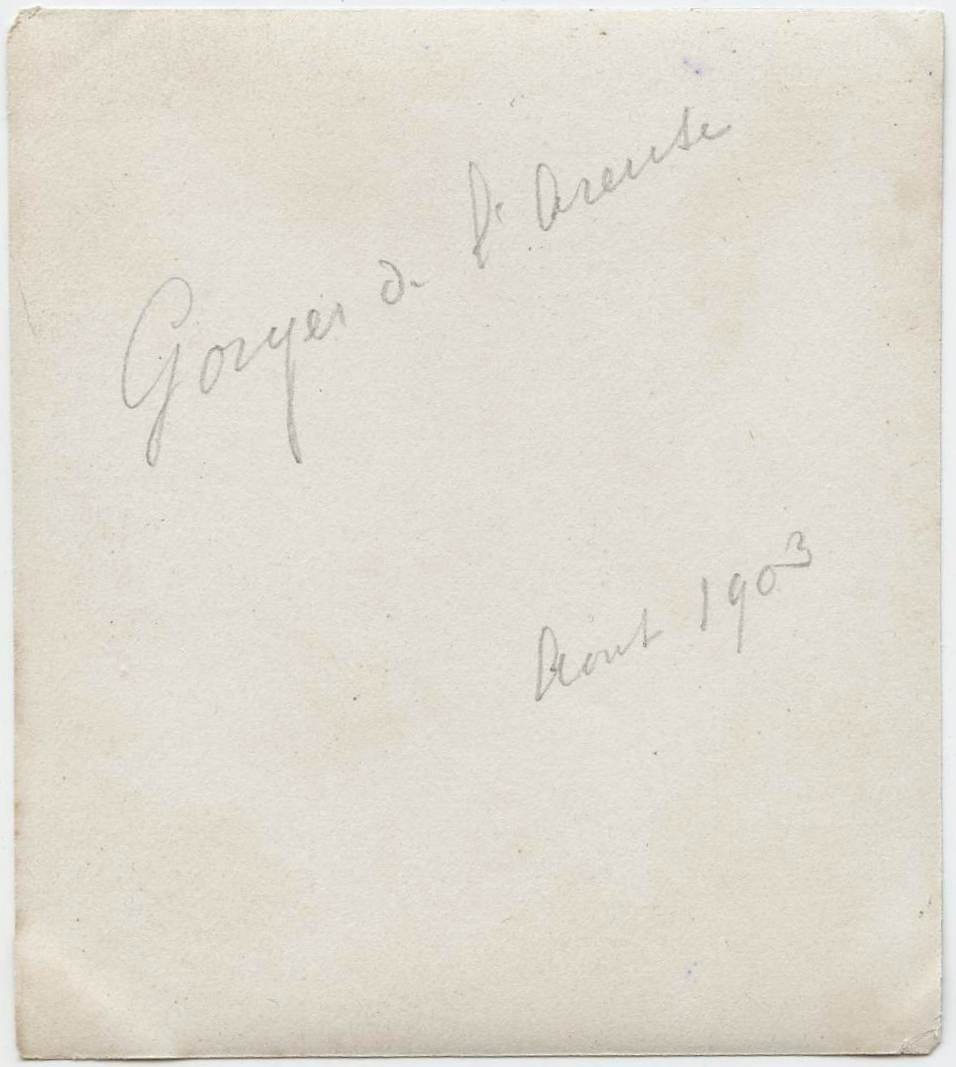 Gorges de l'Areuse
Aout 1903